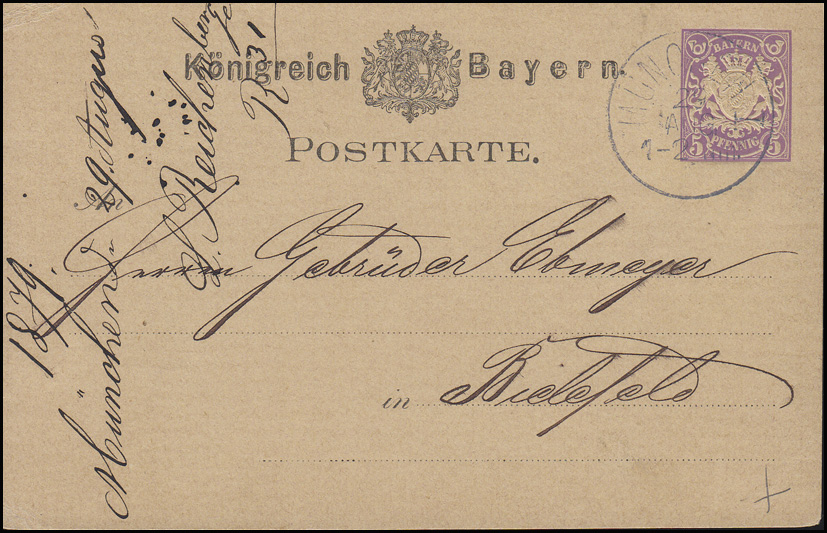 Königreich Bayern.
POSTKARTE.
BAYERN
5 PFENNIG 5
MÜNC
1-2
An
Herrn Gebrüder Ebmeyer
in Bielefeld
München d. 29 August
1879.
Reichenberg
R 31